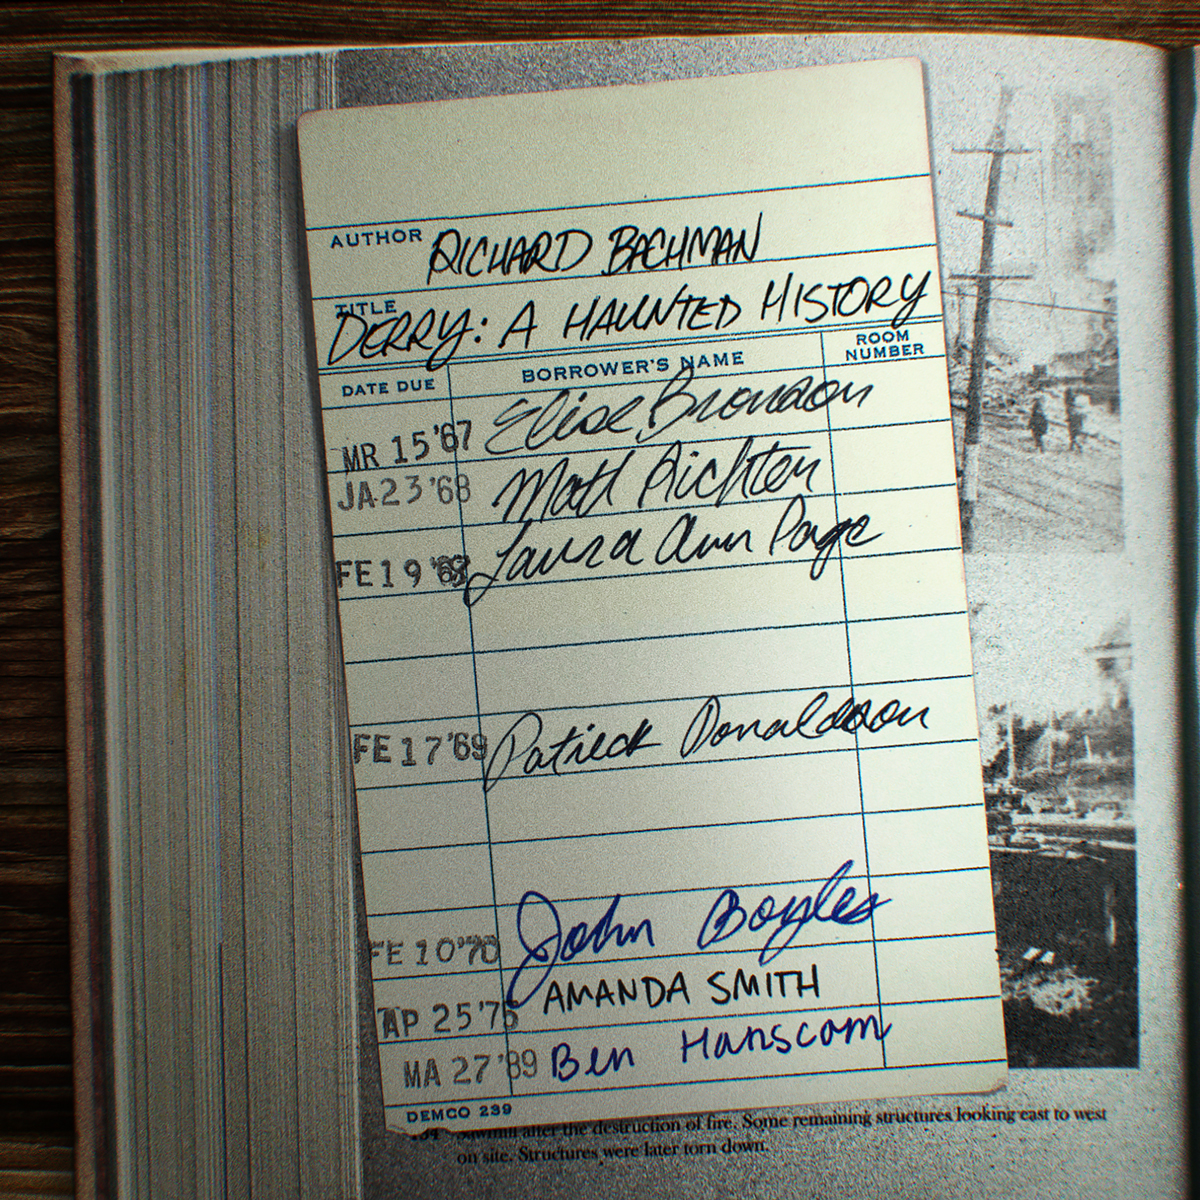 AUTHOR RICHARD BACHMAN
TITLE DERRY: A HAUNTED HISTORY
DATE DUE BORROWER'S NAME ROOM NUMBER
MR 15 '67 Elise Bronson
JA 23 '68 Matt Richten
FE 19 '68 Laura Ann Page
FE 17 '69 Patrick Donaldson
FE 10 '70 John Boyles
AP 25 '75 AMANDA SMITH
MA 27 '89 Ben Hanscom
DEMCO 239
after the destruction of fire. Some remaining structures looking east to west
on site. Structures were later torn down.